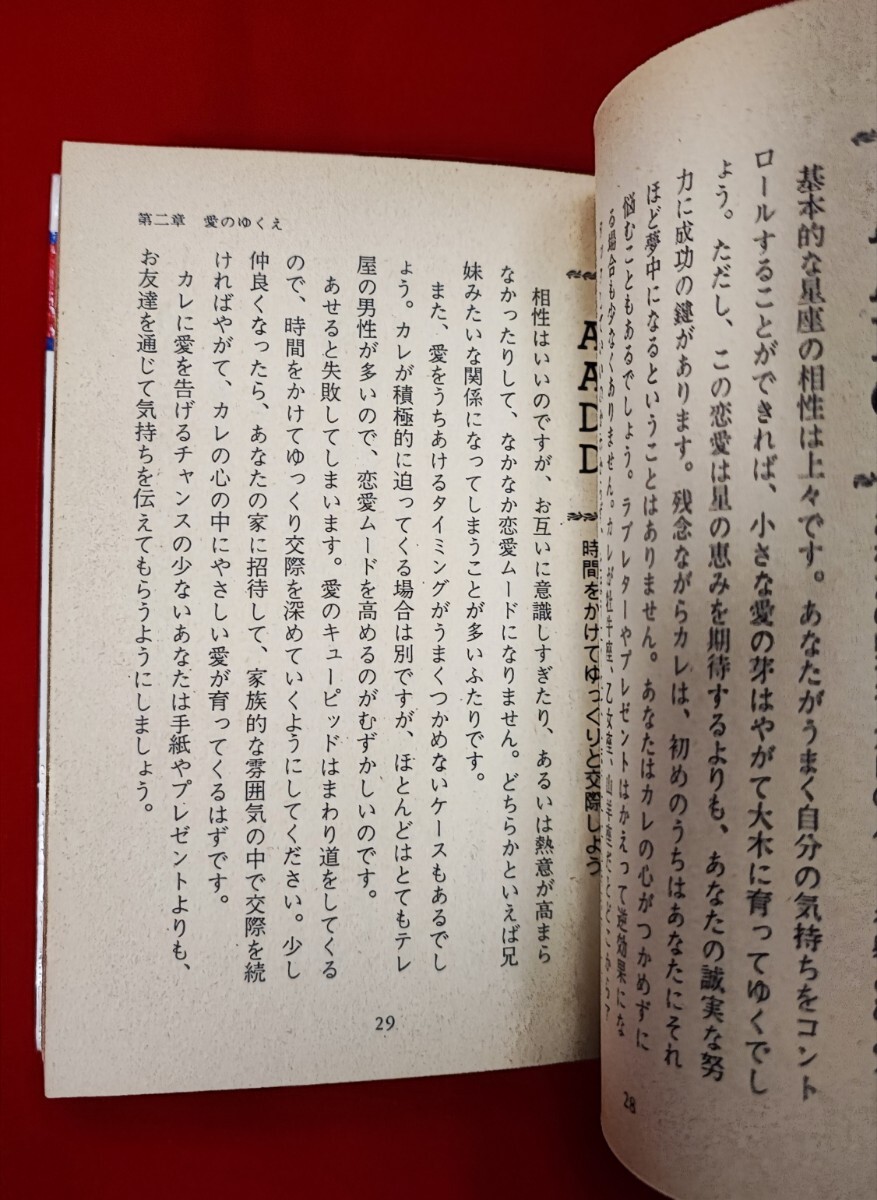 基本的な星座の相性は上々です。あなたがうまく自分の気持ちをコント
ロールすることができれば、小さな愛の芽はやがて大木に育ってゆくでし
ょう。ただし、この恋愛は星の恵みを期待するよりも、あなたの誠実な努
力に成功の鍵があります。残念ながらカレは、初めのうちはあなたにそれ
ほど夢中になるということはありません。あなたはカレの心がつかめずに
悩むこともあるでしょう。ラブレターやプレゼントはかえって逆効果にな
る場合も少なくありません。カレが牡牛座、乙女座、山羊座だと
28
AADD
時間をかけてゆっくりと交際しよう
相性はいいのですが、お互いに意識しすぎたり、あるいは熱意が高まら
なかったりして、なかなか恋愛ムードになりません。どちらかといえば兄
妹みたいな関係になってしまうことが多いふたりです。
また、愛をうちあけるタイミングがうまくつかめないケースもあるでし
ょう。カレが積極的に迫ってくる場合は別ですが、ほとんどはとてもテレ
屋の男性が多いので、恋愛ムードを高めるのがむずかしいのです。
あせると失敗してしまいます。愛のキューピッドはまわり道をしてくる
ので、時間をかけてゆっくり交際を深めていくようにしてください。少し
仲良くなったら、あなたの家に招待して、家族的な雰囲気の中で交際を続
ければやがて、カレの心の中にやさしい愛が育ってくるはずです。
カレに愛を告げるチャンスの少ないあなたは手紙やプレゼントよりも、
お友達を通じて気持ちを伝えてもらうようにしましょう。
第二章 愛のゆくえ
29